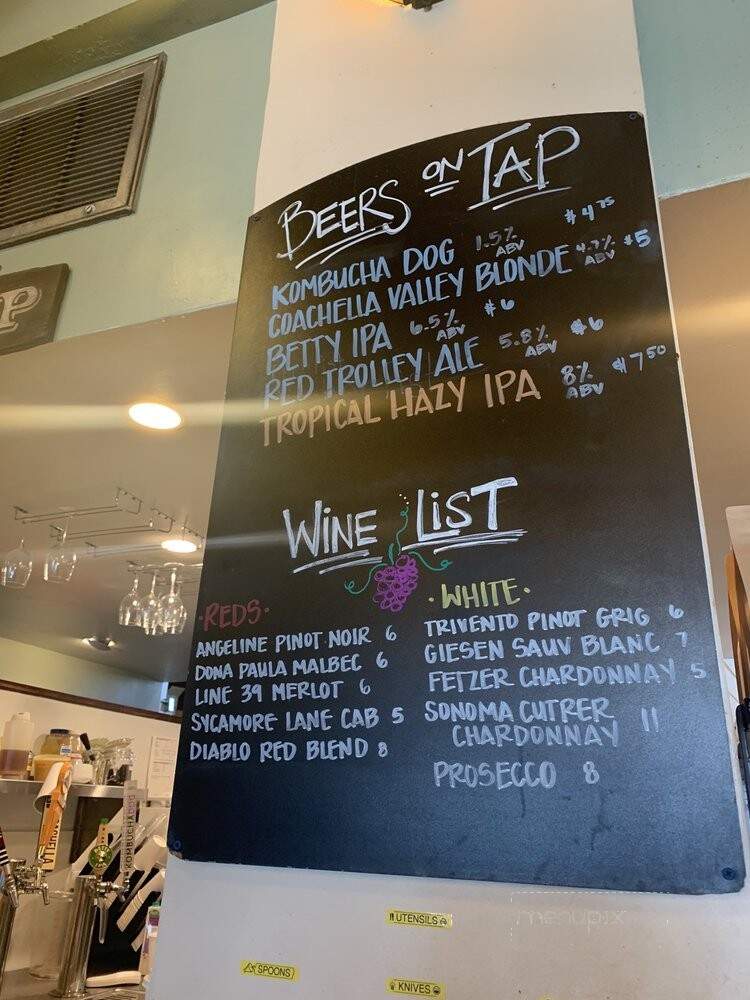 BEERS ON TAP
KOMBUCHA DOG 1.5% ABV $4.75
COACHELLA VALLEY BLONDE 4.7% ABV $5
BETTY IPA 6.5% ABV $6
RED TROLLEY ALE 5.8% ABV $6
TROPICAL HAZY IPA 8% ABV $7.50
WINE LIST
·REDS·
ANGELINE PINOT NOIR 6
DONA PAULA MALBEC 6
LINE 39 MERLOT 6
SYCAMORE LANE CAB 5
DIABLO RED BLEND 8
·WHITE·
TRIVENTO PINOT GRIG 6
GIESEN SAUV BLANC 7
FETZER CHARDONNAY 5
SONOMA CUTRER
CHARDONNAY 11
PROSECCO 8
P
KOMBUCHADOG
UTENSILS
SPOONS
KNIVES
menupix